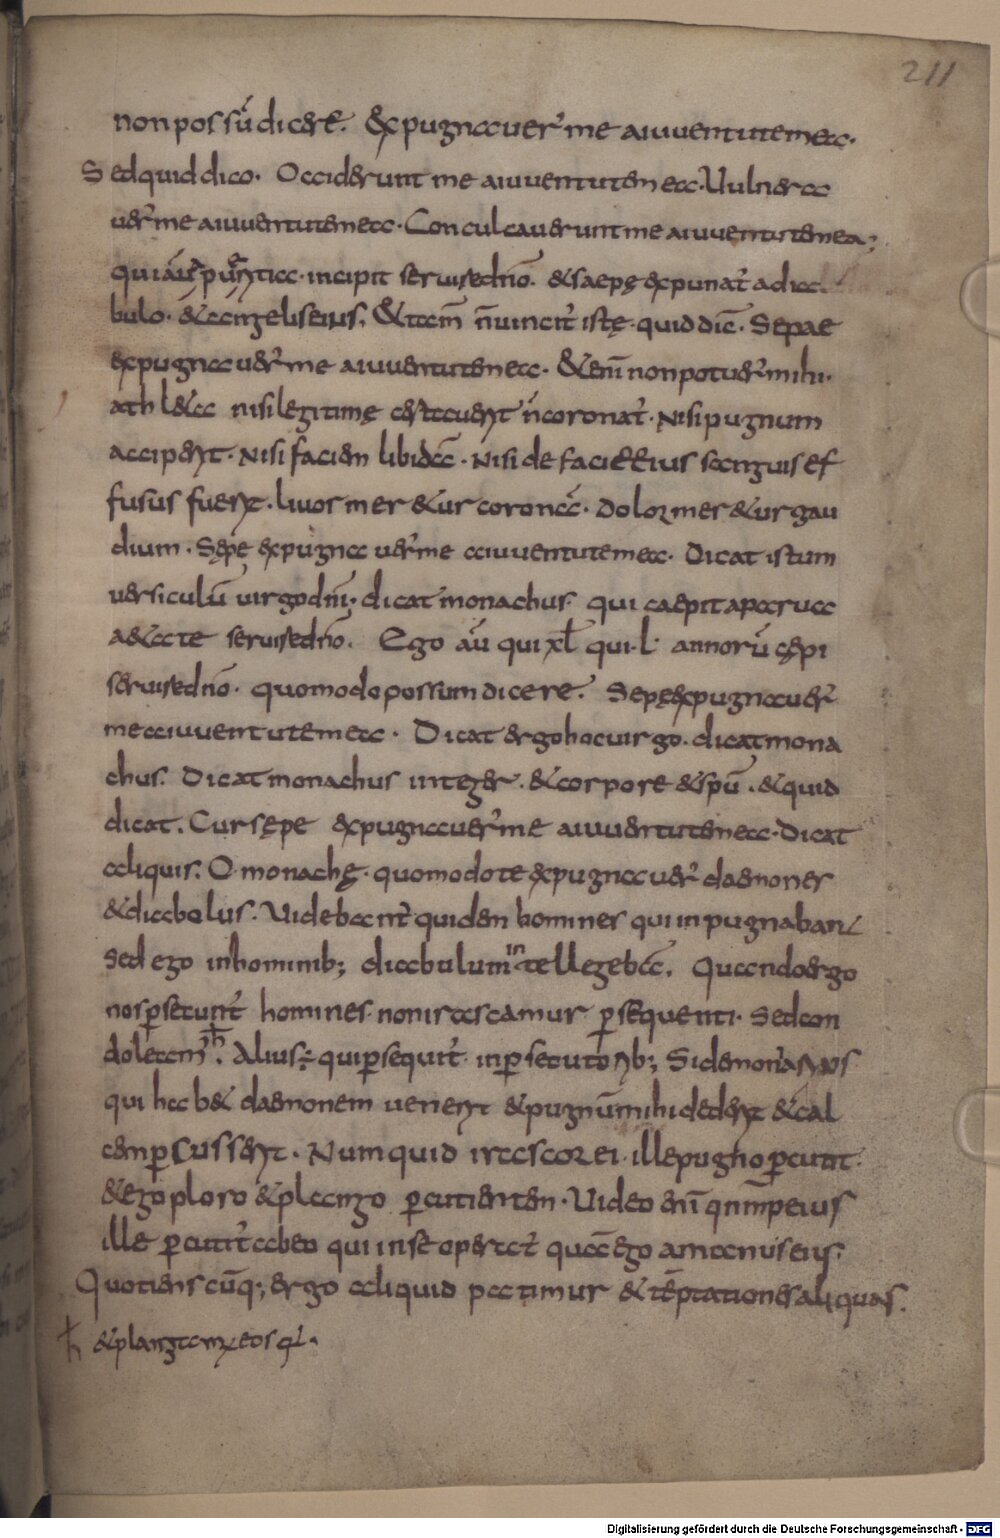 211
non possū dicere. Expugnauer̄ me aiuuentutemea.
Sed quid dico. Occiderunt me aiuuentutem ea. Uulnera
uer̄ me aiuuentutemea. Conculcauerunt me aiuuentutemea;
qui incipit seruire dn̄o. & saepę expugnat̄ a dia
bulo. & angelis eius. & tam̄ n̄ uincit̄ istę. quid dic̄. Sepae
expugnauer̄ me aiuuentutem ea. & eni non potuer̄ mihi.
athleta nisi legitimę certauerit n̄ coronat̄. Nisi pugnum
acciperit. Nisi faciem libidā. Nisi de facie eius sanguis ef
fusus fuerit. liuor meretur coronā. Dolor meretur gau
dium. Sępe expugnauer̄ me aiuuentutemea. Dicat istum
uersiculū uirgo dn̄i. dicat monachus. qui caepit aparua
aetate seruire dn̄o. Ego aū qui xl qui l annorū cępi
seruire dn̄o. quomodo possum dicere. Sepę expugnauer̄
me aiuuentutemea. Dicat ergo hoc uirgo. dicat mona
chus. Dicat monachus integer. & corpore & spū. & quid
dicat. Cur sępe expugnauer̄ me aiuuentutem ea. Dicat
aliquis. O monachę. quomodo te expugnauer̄ daemones
& diabolus. Uidebant quidem homines qui inpugnabant
Sed ego inhominib; diabulum intellegebā. Quando ergo
nos persecunt̄ homines non irascamur persequenti. Sed con
doleam̄. Alius; qui persequit̄ in persecutorib;
qui habet daemonem uenerit & pugnū mihi dederit & cal
cem percusserit. Numquid irascor ei. ille pugno percutit
& ego ploro & plango percutientem. Uideo eni peius
ille percutit̄ ab eo qui in se operat̄ quā ego amanu eius.
Quotienscūq; ergo aliquid patimur & tēptationes aliquas.
& plangam eos qui.
Digitalisierung gefördert durch die Deutsche Forschungsgemeinschaft - DFG